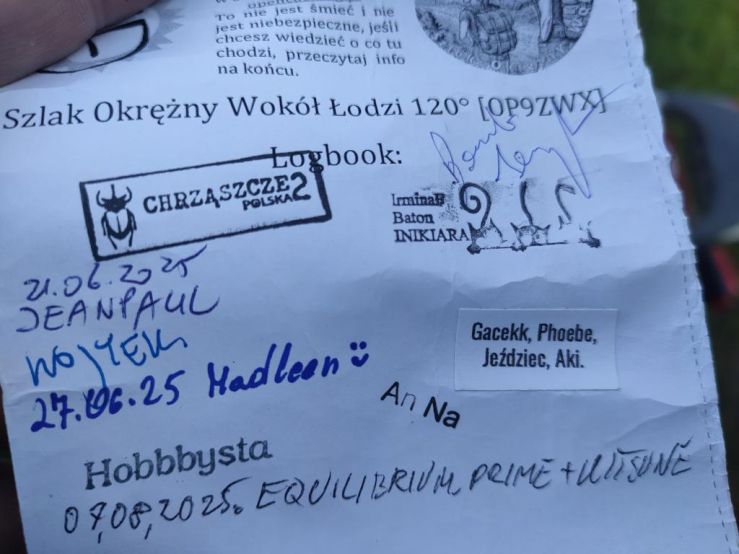 To nie jest śmieć i nie
jest niebezpieczne, jeśli
chcesz wiedzieć o co tu
chodzi, przeczytaj info
na końcu.
Szlak Okrężny Wokół Łodzi 120° [OP9ZWX]
Logbook:
CHRZĄSZCZE2
POLSKA
IrminaB
Baton
INIKIARA
21.06.2025
JEANPAUL
WOJTEK
27.06.25 Madleen
Gacekk, Phoebe,
Jeździec, Aki.
An Na
Hobbbysta
07,08,2025. EQUILIBRIUM PRIME + KITSUNE